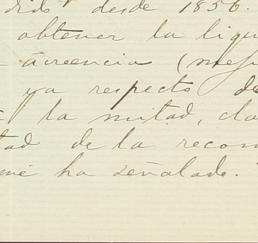 dido desde 1856.
obtener la liqu
acreencia (mesu
ya respecto de
la mitad, cla
tad de la recom
me ha señalado.